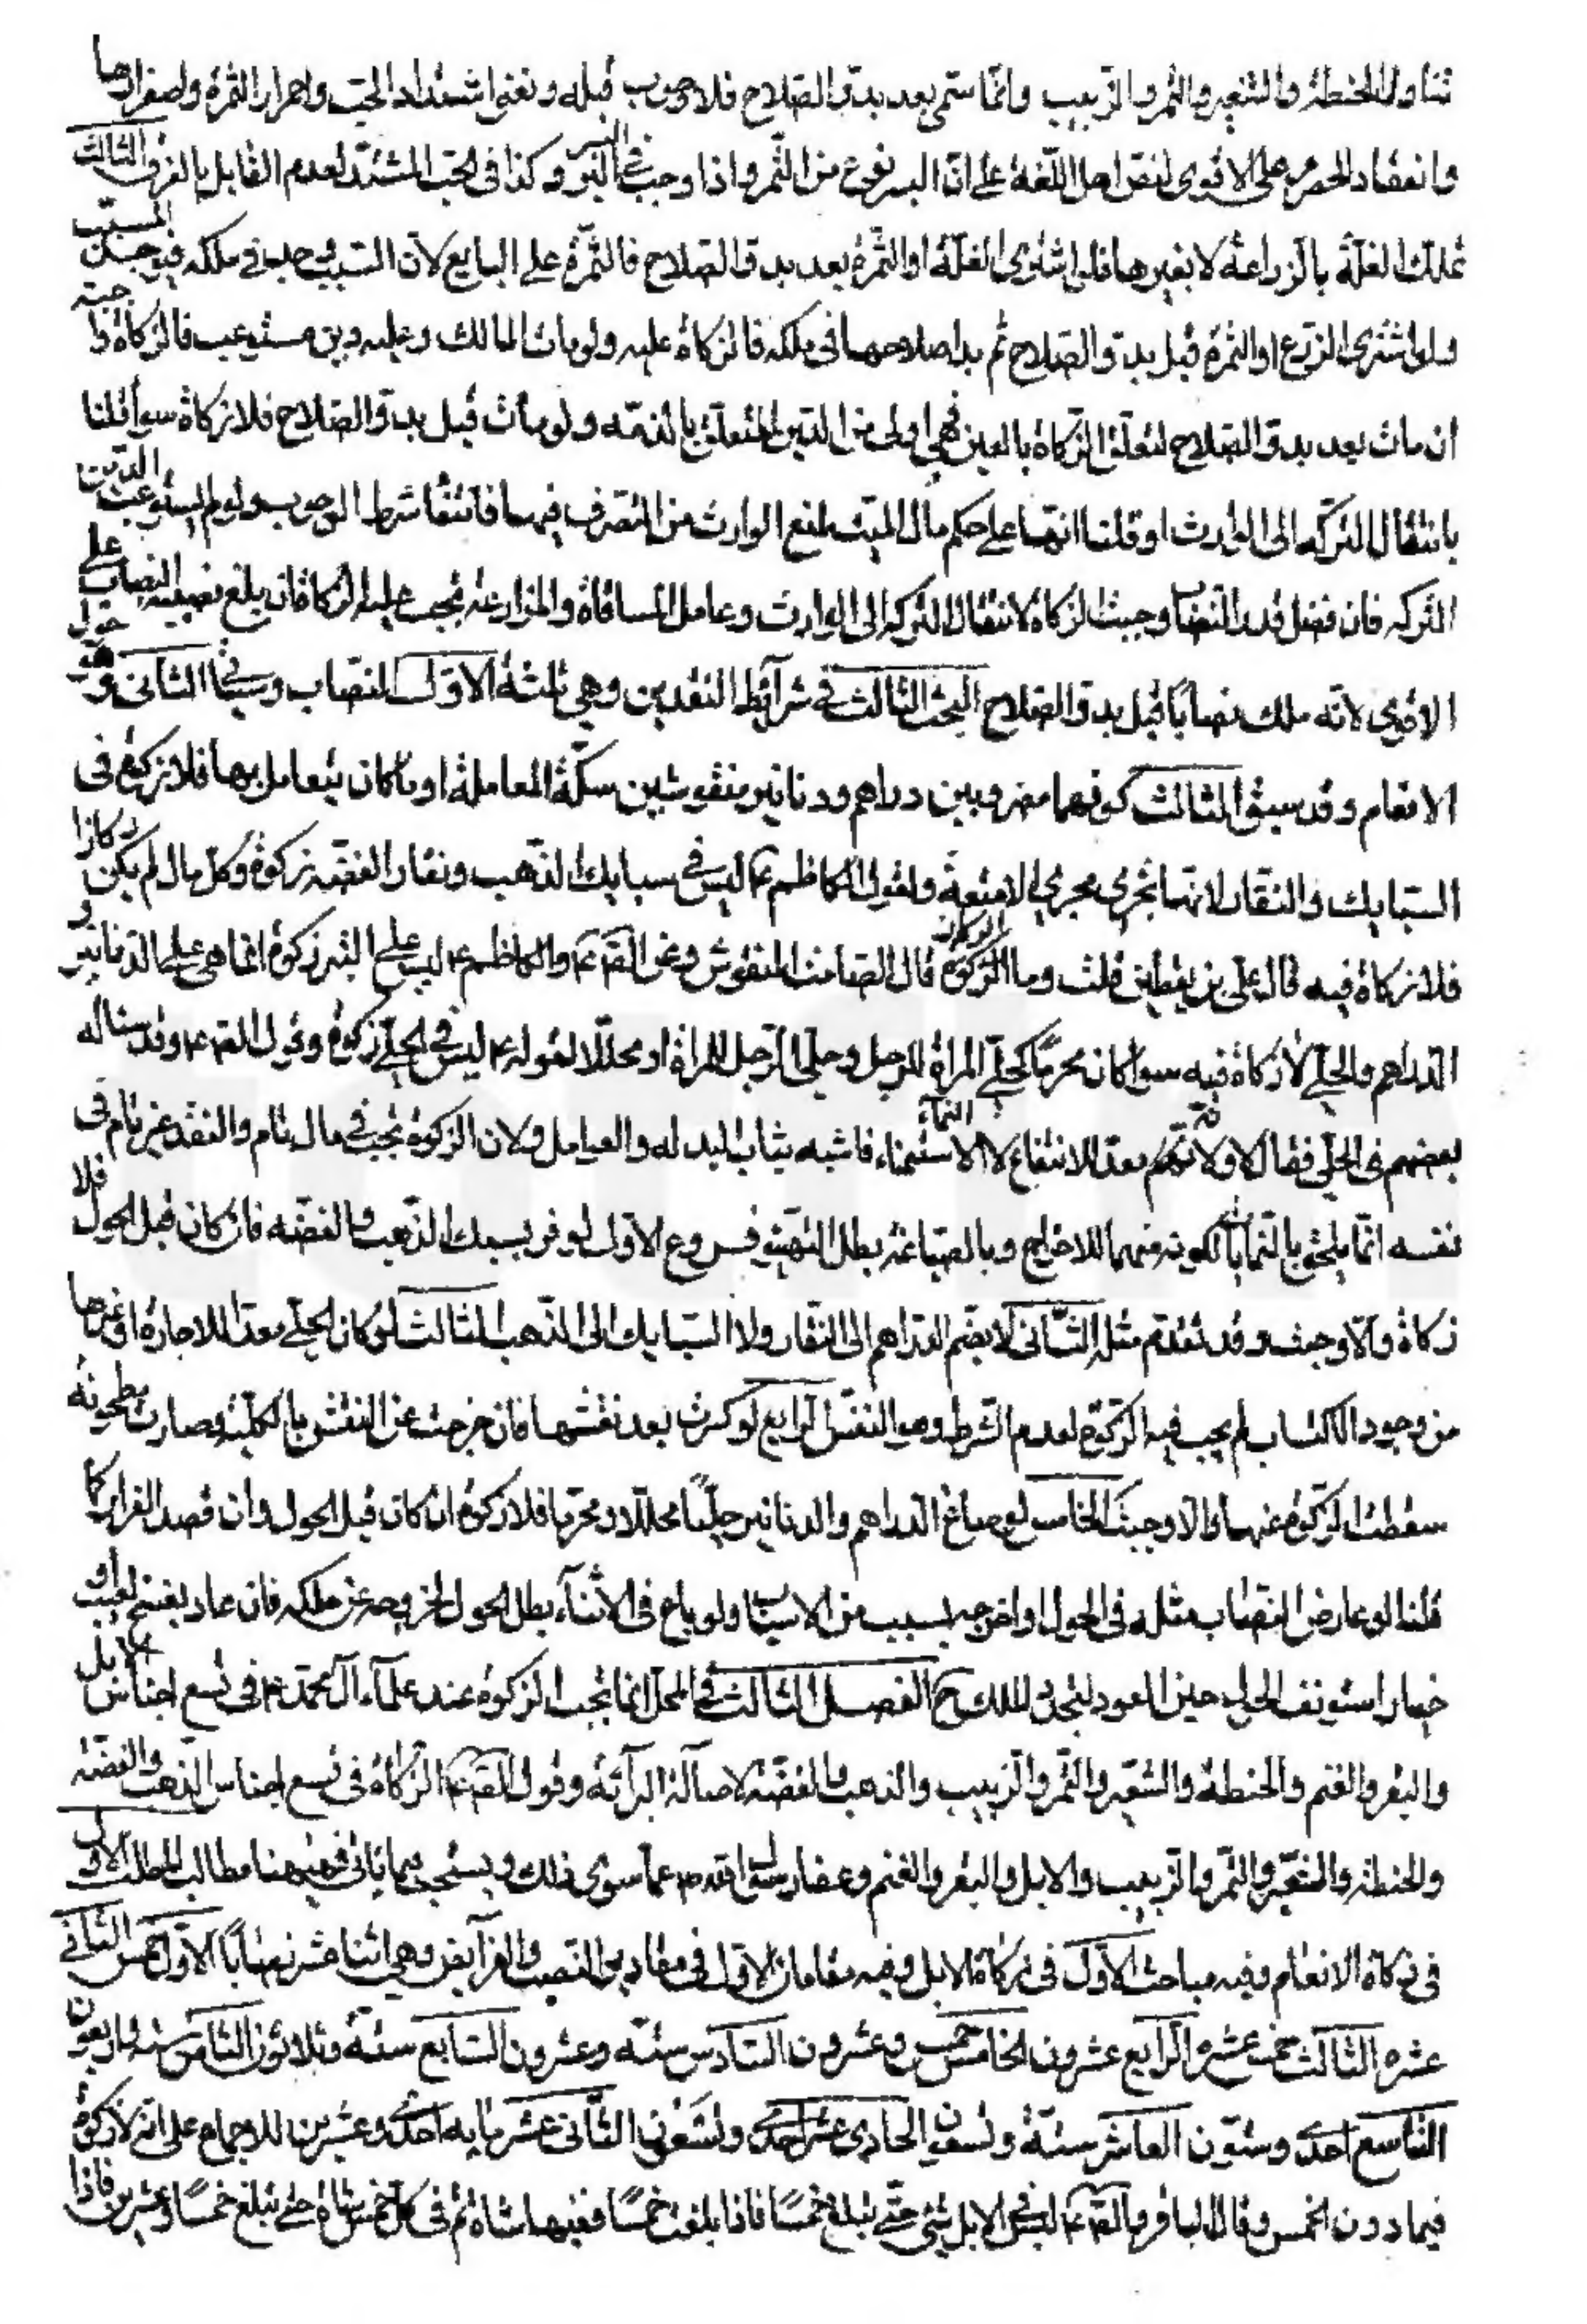 تناول الحنطة والشعير والتمر والزبيب وانما سمى بعد بدو الصلاح فلا وجوب قبله ونعنى اشتداد الحب واحمرار الثمرة واصفرارها
وانعقاد الحصرم على الاقوى لنص اهل اللغة على ان البسر نوع من التمر واذا وجب فى البسر وكذا فى الحب المشتد لعدم القايل بالفرق الثالث
تملك الغلة بالزراعة لا بغيرها فلو اشترى الغلة او الثمرة بعد بدو الصلاح فالثمرة على البايع لان السبب وجب فى ملكه فيوجد المسبب
ولو اشترى الزرع او الثمرة قبل بدو الصلاح ثم بدا صلاحها فى ملكه فالزكاة عليه ولو مات المالك وعليه دين مستوعب فالزكاة واجبة
ان مات بعد بدو الصلاح لتعلق الزكاة بالعين فهى اولى من الدين المتعلق بالذمه ولو مات قبل بدو الصلاح فلا زكاة سوآ قلنا
بانتقال التركه الى الوارث او قلنا انها على حكم مال الميت لمنع الوارث من التصرف فيها فانتفا شرط الوجوب ولو لم يستوعب الدين
التركه فان فضل قدر النصاب وجبت الزكاة لانتقال التركه الى الوارث وعامل المساقاة والمزارعة تجب عليه الزكاة فان بلغ نصيبه النصاب على
الاقوى لانه ملك نصابا قبل بدو الصلاح البحث الثالث فى شرآئط النقدين وهى ثلثة الاول النصاب وسيأتى الثانى حول
الانعام وقد سبق الثالث كونهما مضروبين دراهم ودنانير منقوشين سكة المعاملة او ما كان يتعامل بها فلا زكوة فى
السبايك والنقار لانها تجرى مجرى الامتعة ولقول الكاظم ع ليس فى سبايك الذهب ونقار الفضه زكوة وكل مال لم يكن ركازا
فلا زكاة فيه قال على بن يقطين قلت وما الركاز قال الصامت المنقوش وعن الصادق ع والكاظم ع ليس على التبر زكوة انما هى على الدنانير و
الدراهم والحلى لا زكاة فيه سوآ كان محرما كحلى المرأة للرجل وحلى الرجل للمرأة او محللا لقوله ع ليس فى الحلى زكوة وقول الصادق ع وقد سأله
بعضهم فى الحلى فقال لا ولانه معد للانتفاع لا الاستنماء فاشبه ثياب البدله والعوامل ولان الزكوة تجب فى مال نام والنقد غير نام فى
نفسه انما يلحق بالناميات لكونه مهيا للاخراج وبالصياغة بطل التهيئ فروع الاول لو فر بسبك الذهب والفضه فان كان قبل الحول فلا
زكاة والا وجبت وقد تقدم مثله الثانى لا يضم الدراهم الى النقار ولا السبايك الى الذهب الثالث لو كان الحلى معدا للاجارة او غيرها
من وجوه الاكتساب لم يجب فيه الزكوة لعدم الشرط وهو النقش الرابع لو كسرت بعد نقشها فان خرجت عن النقش بالكلية وصارت مطحونة
سقطت الزكوة عنها والا وجبت الخامس لو صاغ الدراهم والدنانير حليا محللا او محرما فلا زكوة ان كان قبل الحول وان قصد الفرار كما
قلنا لو عارض النصاب بمثله فى الحول او اخرجه بسبب من الاسباب ولو باع فى الاثنآء بطل الحول لخروجه عن ملكه فان عاد بفسخ لعيب او
خيار استونف الحول حين العود لتجدد الملك ح الفصل الثالث فى المحل انما تجب الزكوة عند علمآء آل محمد ع فى تسع اجناس الابل
والبقر والغنم والحنطة والشعير والتمر والزبيب والذهب والفضه لاصالة البرآئة وقول الصادق ع الزكاة فى تسع اجناس الذهب والفضة
والحنطة والشعير والتمر والزبيب والابل والبقر والغنم وعفا رسول الله ص عما سوى ذلك ويستحب فيما يأتى فههنا مطالب المطلب الاول
فى زكاة الانعام وفيه مباحث الاول فى زكاة الابل وفيه مقامان الاول فى مقادير النصب والفرآيض وهى اثنا عشر نصابا الاول خمس الثانى
عشره الثالث خمس عشره الرابع عشرون الخامس خمس وعشرون السادس ستة وعشرون السابع ستة وثلاثون الثامن ستة واربعون
التاسع احدى وستون العاشر ستة وسبعون الحادى عشر احدى وتسعون الثانى عشر مايه احدى وعشرين للاجماع على انه لا زكوة
فيما دون الخمس وقال الباقر والصادق ع ليس فى الابل شئ حتى تبلغ خمسا فاذا بلغت خمسا ففيها شاة ثم فى كل خمس شاة حتى تبلغ خمسا وعشرين فاذا